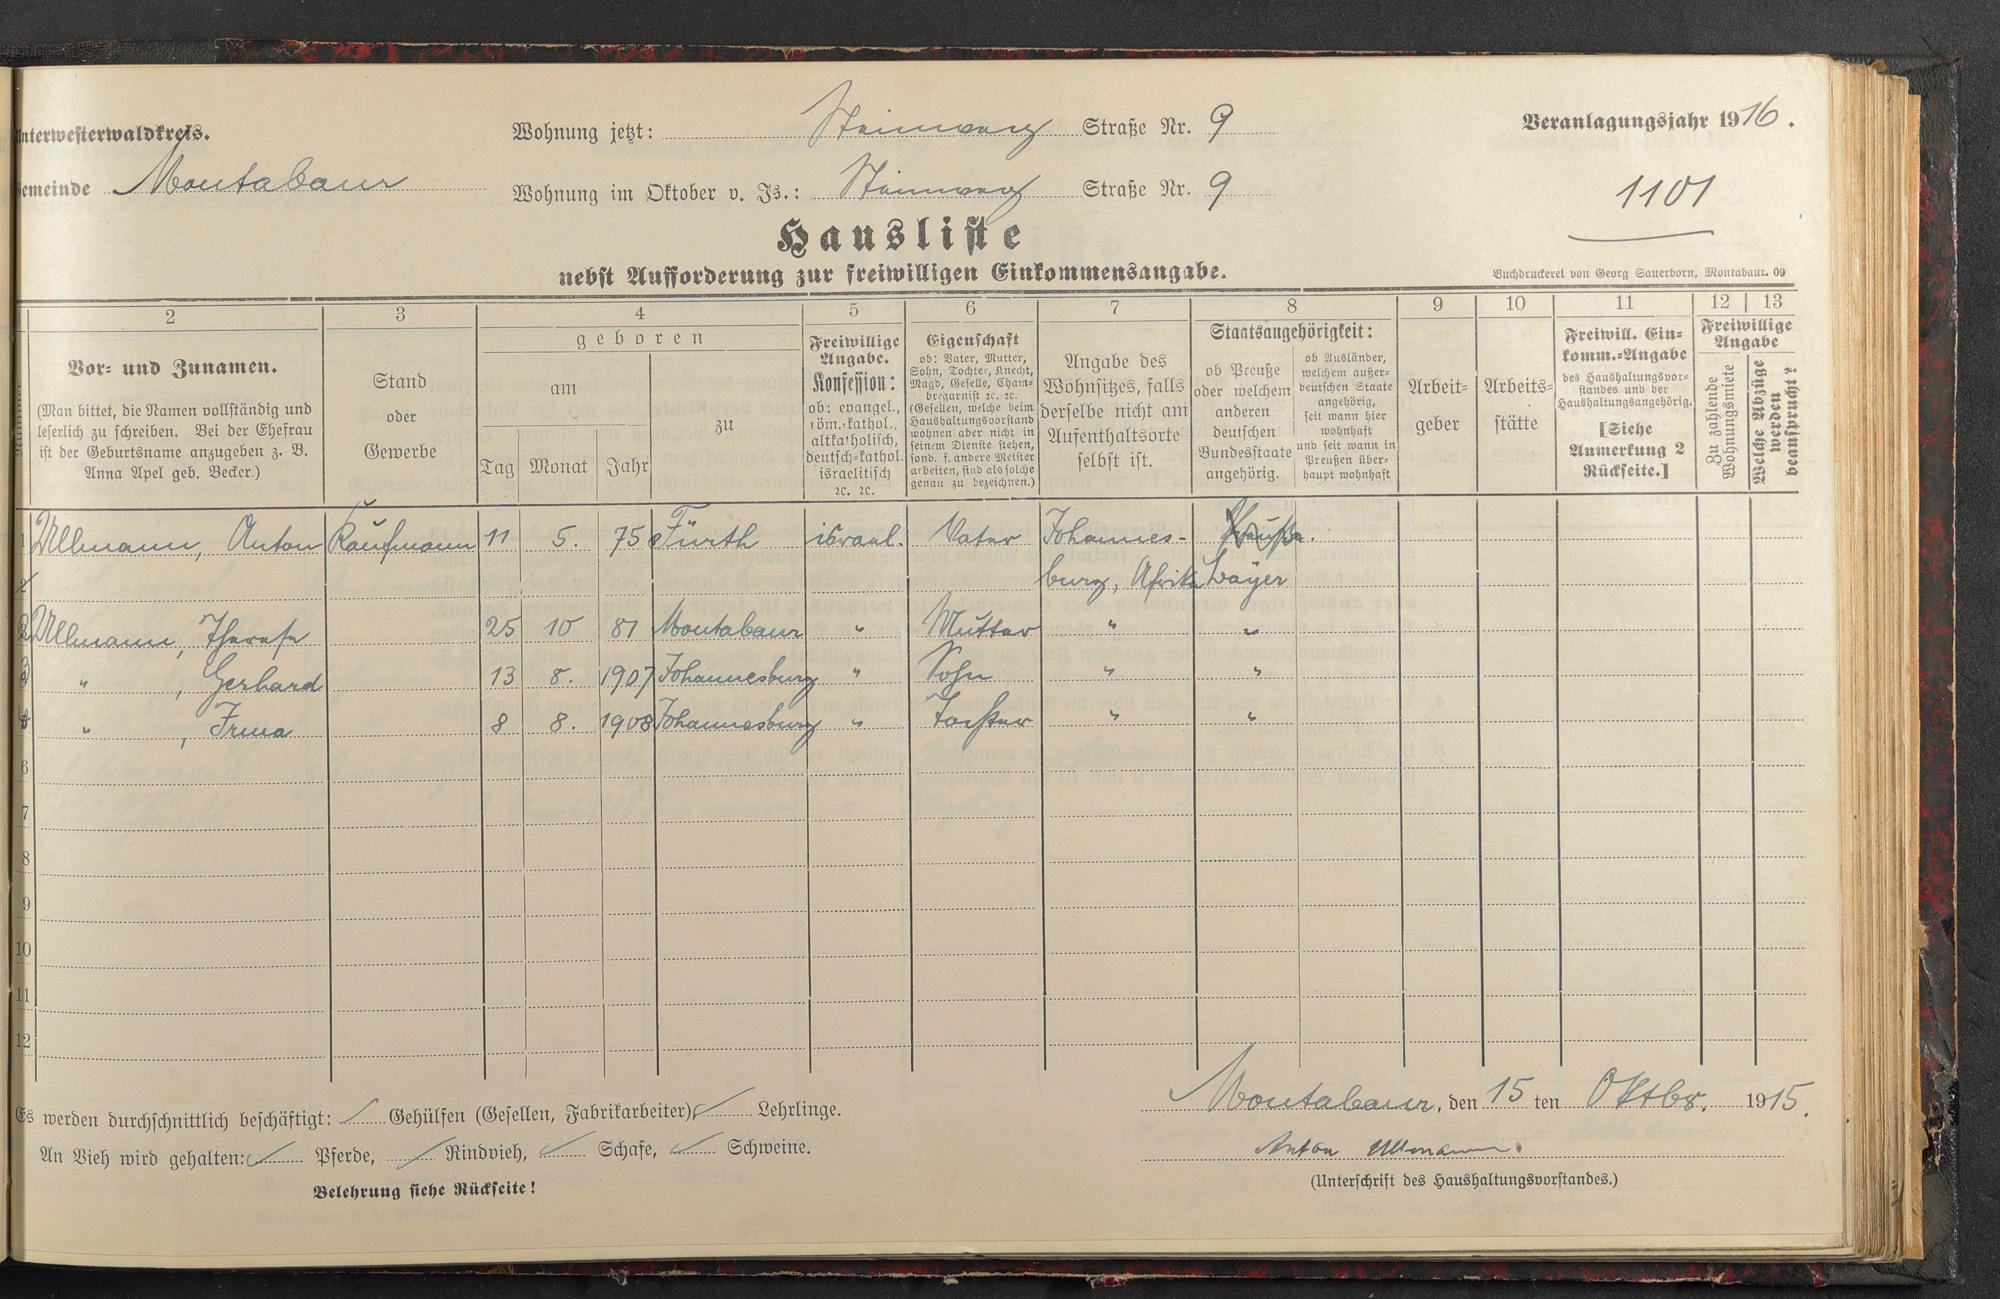 Unterwesterwaldkreis.
Gemeinde Montabaur
Wohnung jetzt: Steinweg Straße Nr. 9
Wohnung im Oktober v. Js.: Steinweg Straße Nr. 9
Veranlagungsjahr 1916.
1101
Hausliste
nebst Aufforderung zur freiwilligen Einkommensangabe.
Buchdruckerei von Georg Sauerborn, Montabaur. 09
2 3 4 5 6 7 8 9 10 11 12 13
Nummer
Vor- und Zunamen.
(Man bittet, die Namen vollständig und
leserlich zu schreiben. Bei der Ehefrau
ist der Geburtsname anzugeben z. B.
Anna Apel geb. Becker.)
Stand
oder
Gewerbe
geboren
am
zu
Tag Monat Jahr
Freiwillige
Angabe.
Konfession:
ob: evangel.,
röm.-kathol.,
altkatholisch,
deutsch-kathol.
israelitisch
ec. ec.
Eigenschaft
ob: Vater, Mutter,
Sohn, Tochter, Knecht,
Magd, Geselle, Cham-
bregarnist ec. ec.
(Gesellen, welche beim
Haushaltungsvorstand
wohnen aber nicht in
seinem Dienste stehen,
sond. f. andere Meister
arbeiten, sind als solche
genau zu bezeichnen.)
Angabe des
Wohnsitzes, falls
derselbe nicht am
Aufenthaltsorte
selbst ist.
Staatsangehörigkeit:
ob Preuße
oder welchem
anderen
deutschen
Bundesstaate
angehörig.
ob Ausländer,
welchem außer-
deutschen Staate
angehörig,
seit wann hier
wohnhaft
und seit wann in
Preußen über-
haupt wohnhaft
Arbeit-
geber
Arbeits-
stätte
Freiwill. Ein-
komm.-Angabe
des Haushaltungsvor-
standes und der
Haushaltungsangehörig.
[Siehe
Anmerkung 2
Rückseite.]
Freiwillige
Angabe
Zu zahlende
Wohnungsmiete
Welche Abzüge
werden
beansprucht?
1 Ullmann, Anton Kaufmann 11 5. 75 Fürth israel. Vater Johannes- Preuße.
burg, Afrika Bayer
2 Ullmann, Therese 25 10 81 Montabaur " Mutter " "
3 " , Gerhard 13 8. 1907 Johannesburg " Sohn " "
4 " , Irma 8 8. 1908 Johannesburg " Tochter " "
6
7
8
9
10
11
12
Es werden durchschnittlich beschäftigt: / Gehülfen (Gesellen, Fabrikarbeiter) / Lehrlinge.
An Vieh wird gehalten: / Pferde, / Rindvieh, / Schafe, / Schweine.
Belehrung siehe Rückseite!
Montabaur, den 15 ten Oktbr. 1915.
Anton Ullmann.
(Unterschrift des Haushaltungsvorstandes.)